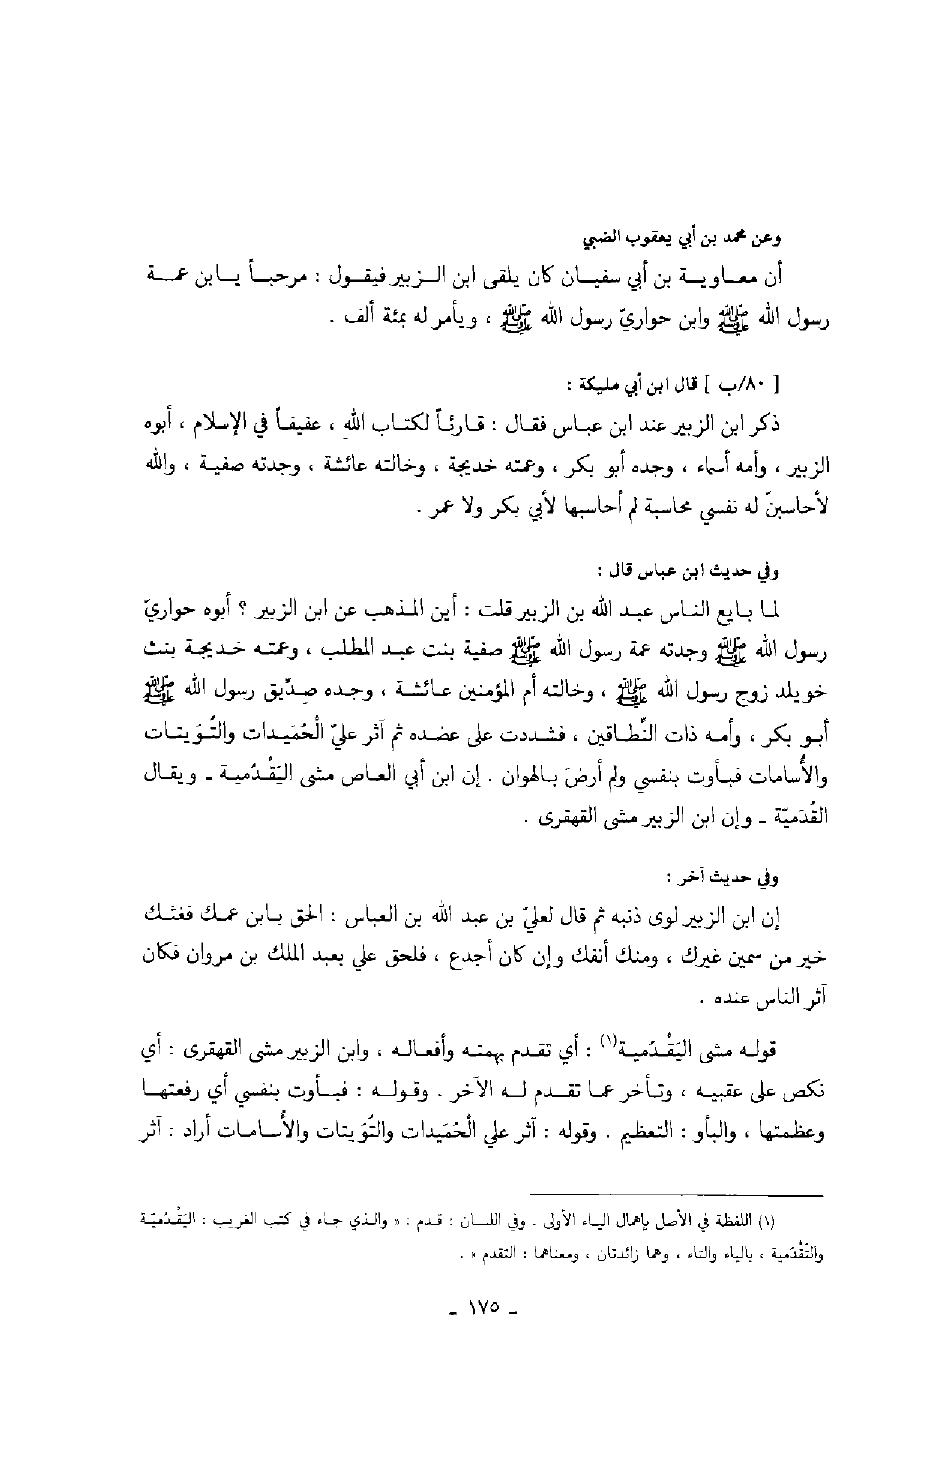 وعن محمد بن أبي يعقوب الضبي
أن معاوية بن أبي سفيان كان يلقى ابن الزبير فيقول : مرحباً يابن عمة
رسول الله ﷺ وابن حواريّ رسول الله ﷺ ، ويأمر له بمئة ألف .
[ ٨٠/ب ] قال ابن أبي مليكة :
ذكر ابن الزبير عند ابن عباس فقال : قارئاً لكتاب الله ، عفيفاً في الإسلام ، أبوه
الزبير ، وأمه أسماء ، وجده أبو بكر ، وعمته خديجة ، وخالته عائشة ، وجدته صفية ، والله
لأحاسبنّ له نفسي محاسبة لم أحاسبها لأبي بكر ولا عمر .
وفي حديث ابن عباس قال :
لما بايع الناس عبد الله بن الزبير قلت : أين المذهب عن ابن الزبير ؟ أبوه حواريّ
رسول الله ﷺ وجدته عمة رسول الله ﷺ صفية بنت عبد المطلب ، وعمته خديجة بنت
خويلد زوج رسول الله ﷺ ، وخالته أم المؤمنين عائشة ، وجده صدّيق رسول الله ﷺ
أبو بكر ، وأمه ذات النّطاقين ، فشددت على عضده ثم آثر عليّ الحُمَيدات والتُّوَيتات
والأُسامات فبأوت بنفسي ولم أرضَ بالهوان . إن ابن أبي العاص مشى اليَقْدُمية ـ ويقال
القُدَميّة ـ وإن ابن الزبير مشى القهقرى .
وفي حديث آخر :
إن ابن الزبير لوى ذنبه ثم قال لعليّ بن عبد الله بن العباس : الحق بابن عمك فغثك
خير من سمين غيرك ، ومنك أنفك وإن كان أجدع ، فلحق علي بعبد الملك بن مروان فكان
آثر الناس عنده .
قوله مشى اليَقْدُمية(١) : أي تقدم بهمته وأفعاله ، وابن الزبير مشى القهقرى : أي
نكص على عقبيه ، وتأخر عما تقدم له الآخر . وقوله : فبأوت بنفسي أي رفعتها
وعظمتها ، والبأو : التعظيم . وقوله : آثر علي الحُمَيدات والتُّوَيتات والأُسامات أراد : آثر
(١) اللفظة في الأصل بإهمال الياء الأولى . وفي اللسان : قدم : « والذي جاء في كتب الغريب : اليَقْدُميّة
والتَّقْدُمية ، بالياء والتاء ، وهما زائدتان ، ومعناهما : التقدم » .
ـ ١٧٥ ـ